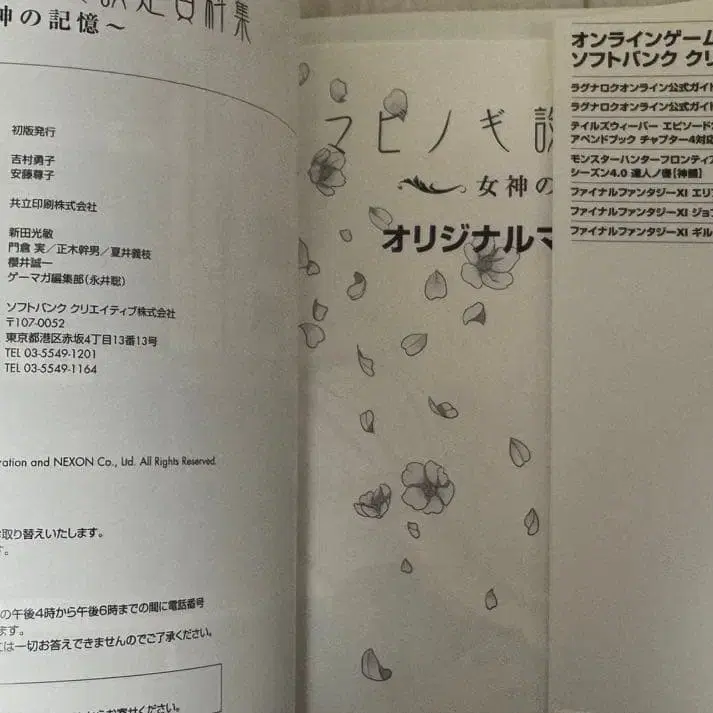 定資料集
神の記憶～
初版発行
吉村勇子
安藤尊子
共立印刷株式会社
新田光敏
門倉 実／正木幹男／夏井義枝
櫻井誠一
ゲーマガ編集部（永井聡）
ソフトバンク クリエイティブ株式会社
〒107-0052
東京都港区赤坂4丁目13番13号
TEL 03-5549-1201
TEL 03-5549-1164
ration and NEXON Co., Ltd. All Rights Reserved.
取り替えいたします。
す。
の午後4時から午後6時までの間に電話番号
ます。
ては一切お答えできませんのでご了承ください。
からお寄せください。
マビノギ設
女神の
オリジナルマ
オンラインゲーム
ソフトバンク クリ
ラグナロクオンライン公式ガイド
ラグナロクオンライン公式ガイド
テイルズウィーバー エピソード
アペンドブック チャプター4対応
モンスターハンターフロンティア
シーズン4.0 達人ノ書【神髄】
ファイナルファンタジーXI エリ
ファイナルファンタジーXI ジョブ
ファイナルファンタジーXI ギル